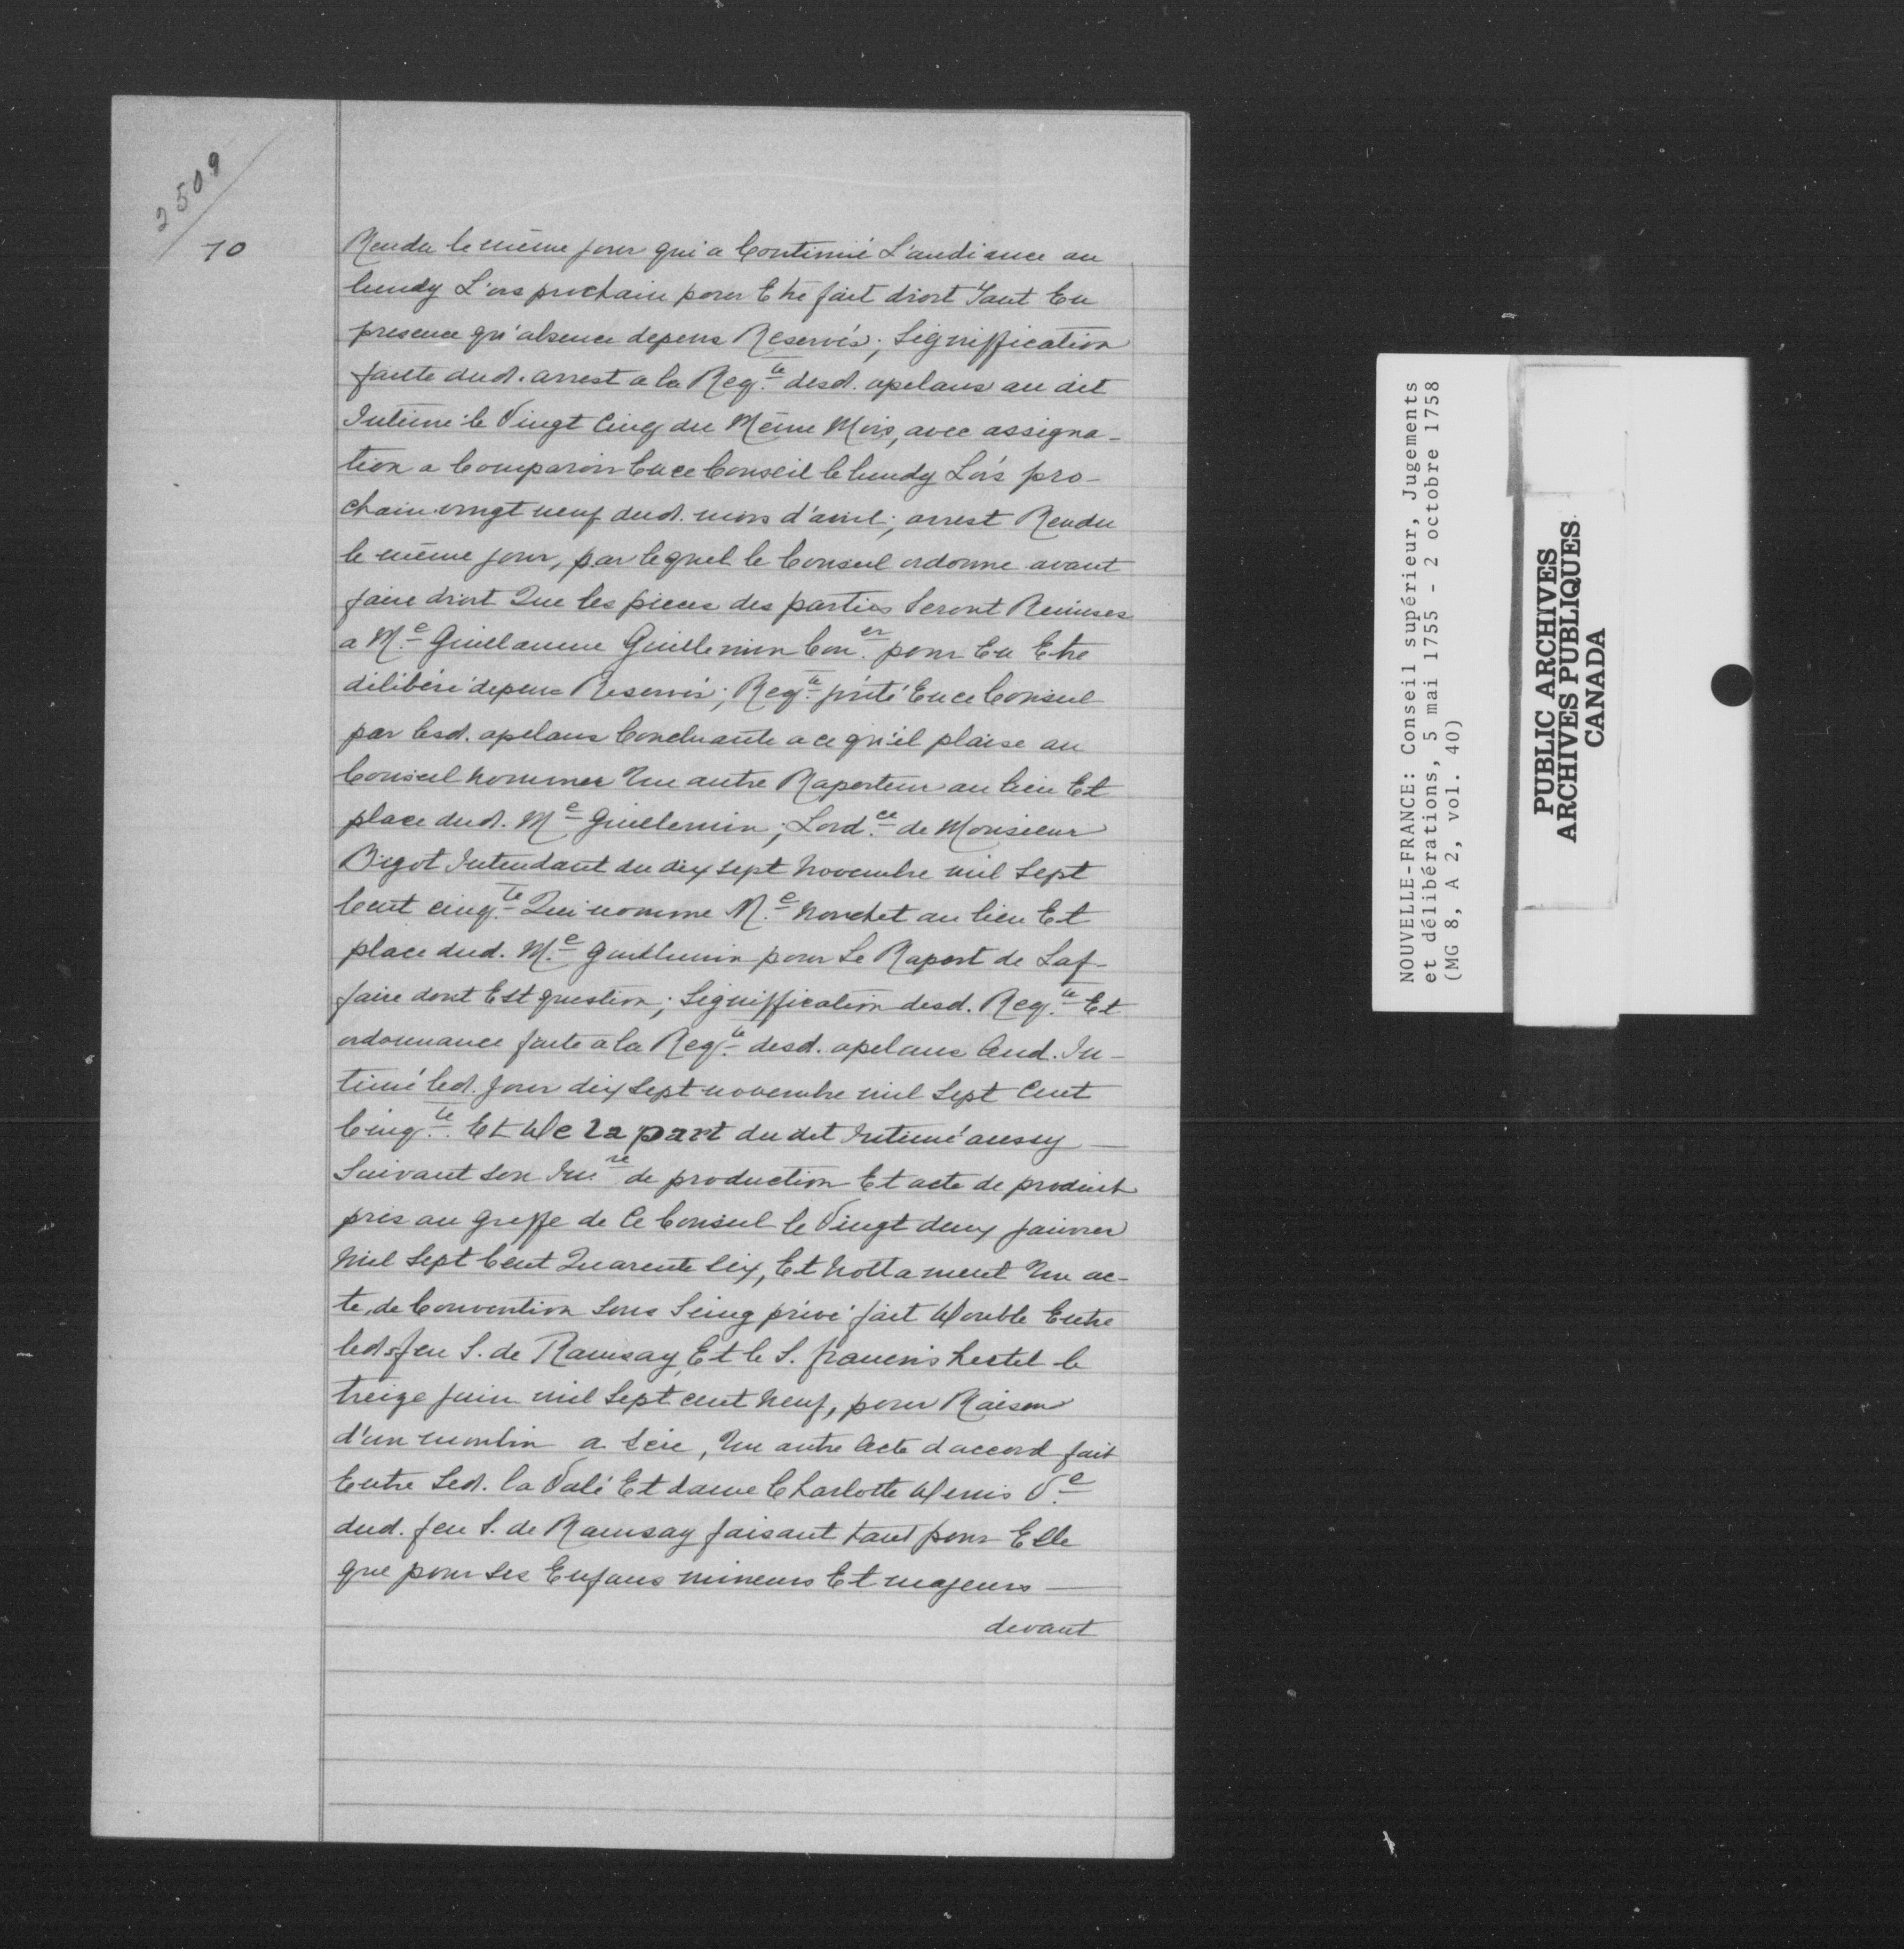 2509
10
Rendu le même jour qui a Continué L'audiance au
lundy L'ors prochain pour Etre fait droit Tant En
presence qu'absence depens Reservés; Signiffication
faite dud. arrest a la Reqte. desd. apelans au dit
Intimé le Vingt Cinq du Même Mois, avec assigna-
tion a Comparoir En ce Conseil le lundy Lors pro-
chain vingt neuf dud. mois d'avril; arrest Rendu
le même jour, par lequel le Conseil ordonne avant
faire droit Que les pieces des parties Seront Remises
a Me. Guillaume Guillemin Coner. pour En Etre
déliberé depens Reservés; Reqte. pñté En ce Conseil
par lesd. apelans Concluante a ce qu'il plaise au
Conseil nommer Un autre Raporteur au lieu Et
place dud. Me Guillemin; Lordce. de Monsieur
Bigot Intendant du dix sept Novembre mil Sept
Cent cinqte. Qui nomme Me. Nouchet au lieu Et
place dud. Me. Guillemin pour Le Raport de Laf-
faire dont Est question; Signiffication desd. Reqte. Et
ordonnance faite a la Reqte. desd. apelans Aud. In-
timé led. jour dix Sept novembre mil Sept Cent
Cinqte. Et de la part du dit Intimé aussy —
Suivant son Inre. de production Et acte de produit
pris au greffe de Ce Conseil le Vingt deux janvier
Mil Sept Cent Quarente Six, Et Nottament Un ac-
te de Convention Sous Seing privé fait double Entre
led. feu S. de Ramsay Et le S. francois hertel le
treize juin mil Sept cent Neuf, pour Raison
d'un moulin a Scie, Un autre Acte d'accord fait
Entre Led. la Valé Et dame Charlotte denis Ve.
dud. feu S. de Ramsay faisant tant pour Elle
que pour Ses Enfans mineurs Et majeurs —
devant
NOUVELLE-FRANCE: Conseil supérieur, Jugements
et délibérations, 5 mai 1755 - 2 octobre 1758
(MG 8, A 2, vol. 40)
PUBLIC ARCHIVES
ARCHIVES PUBLIQUES
CANADA